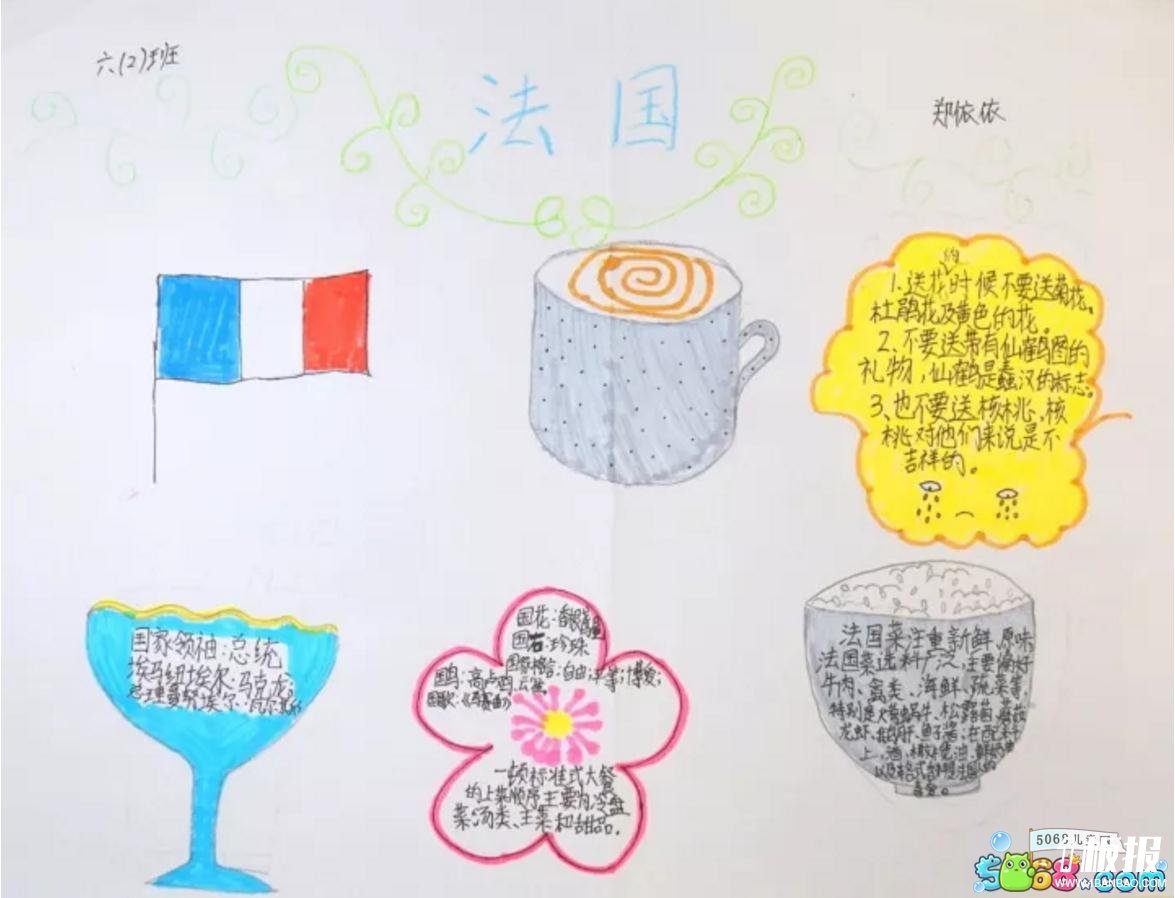 六(2)班
法国
郑依依
1.送花的时候不要送菊花、
杜鹃花及黄色的花。
2.不要送带有仙鹤图的
礼物,仙鹤是蠢汉的标志。
3.也不要送核桃,核
桃对他们来说是不
吉祥的。
国家领袖:总统
埃马纽埃尔·马克龙;
总理曼努埃尔·瓦尔
国花:香根鸢
国石:珍珠
国家格言:自由;平等;博爱;
国鸟:高卢
国歌:《马赛曲》
一顿标准式大餐
的上菜顺序主要为冷盘
菜、汤类、主菜和甜品。
法国菜注重新鲜,原味
法国菜选料广泛,主要偏好
牛肉、禽类、海鲜、蔬菜等,
特别是 蜗牛、松露菌、蘑菇
龙虾、鹅肝、鱼子酱;在配
上,酒、橄榄油、鲜奶油
以及
喜爱。
5068儿童网
5068.com
板报
WWW.1BANBAO.COM